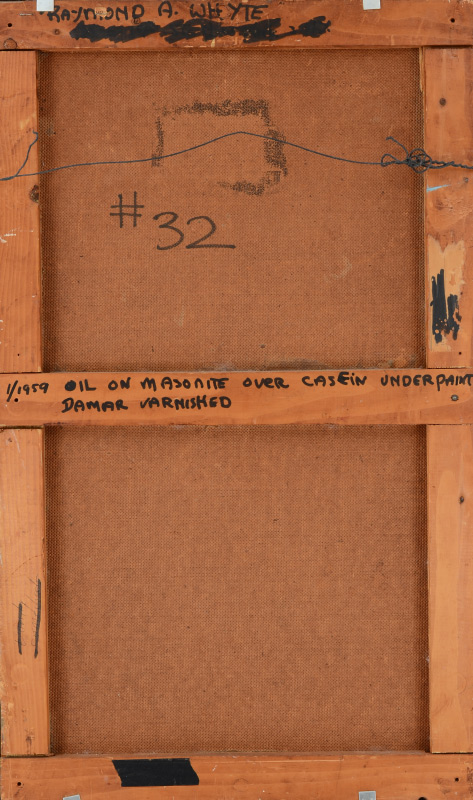 RAYMOND A. WHYTE
#32
1/1959 OIL ON MASONITE OVER CASEIN UNDERPAINT
DAMAR VARNISHED